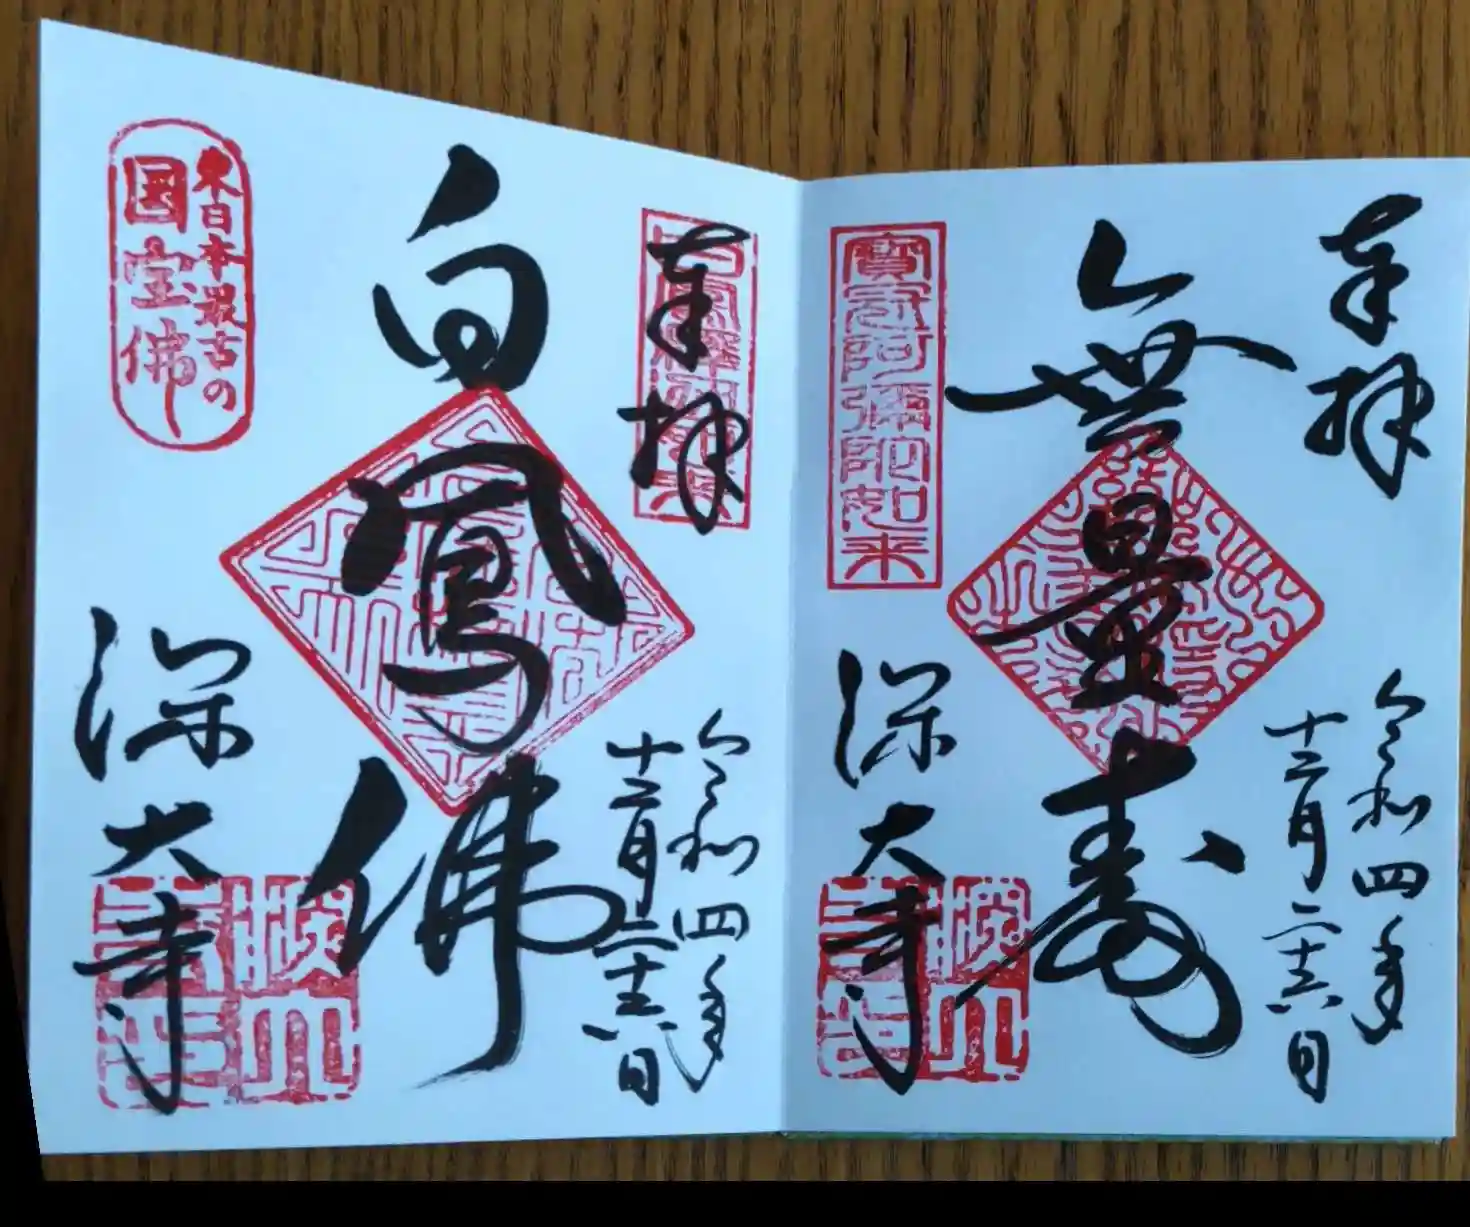 奉拝
令和四年
十二月二十六日
無量寿
寶冠阿彌陀如来
深大寺
奉拝
令和四年
十二月二十六日
白鳳佛
東日本最古の
国宝佛
深大寺